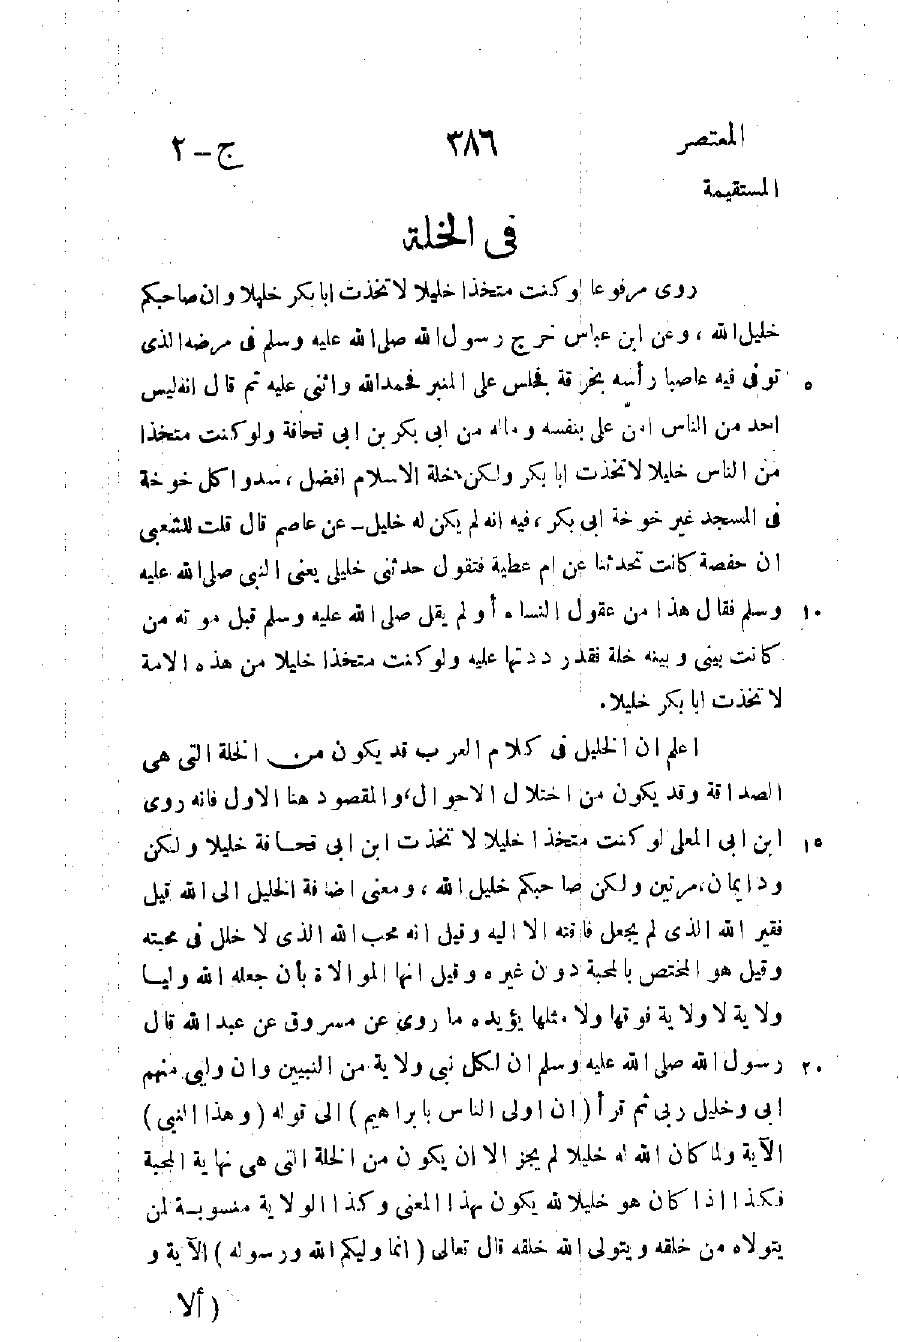 المعتصر ٣٨٦ ج - ٢
المستقيمة
فى الخلة
روى مرفوعا لو كنت متخذا خليلا لاتخذت ابا بكر خليلا وان صاحبكم
خليل الله ، وعن ابن عباس خرج رسول الله صلى الله عليه وسلم فى مرضه الذى
توفى فيه عاصبا رأسه بخرقة فجلس على المنبر فحمد الله واثنى عليه ثم قال انه ليس ٥
احد من الناس امنّ على بنفسه وماله من ابى بكر بن ابى قحافة ولو كنت متخذا
من الناس خليلا لاتخذت ابا بكر ولكن خلة الاسلام افضل ، سدوا كل خوخة
فى المسجد غير خوخة ابى بكر ، فيه انه لم يكن له خليل ـ عن عاصم قال قلت للشعبى
ان حفصة كانت تحدثنا عن ام عطية فتقول حدثنى خليلى يعنى النبى صلى الله عليه
وسلم فقال هذا من عقول النساء أو لم يقل صلى الله عليه وسلم قبل موته من ١٠
كانت بينى وبينه خلة فقد رددتها عليه ولو كنت متخذا خليلا من هذه الامة
لاتخذت ابا بكر خليلا.
اعلم ان الخليل فى كلام العرب قد يكون من الخلة التى هى
الصداقة وقد يكون من اختلال الاحوال، والمقصود هنا الاول فانه روى
ابن ابى المعلى لو كنت متخذا خليلا لاتخذت ابن ابى قحافة خليلا ولكن ١٥
ود ايمان، مرتين ولكن صاحبكم خليل الله ، ومعنى اضافة الخليل الى الله قيل
فقير الله الذى لم يجعل فاقته الا اليه وقيل انه محب الله الذى لا خلل فى محبته
وقيل هو المختص بالمحبة دون غيره وقيل انها الموالاة بأن جعله الله وليا
ولاية لا ولاية فوقها ولا مثلها يؤيده ما روى عن مسروق عن عبد الله قال
رسول الله صلى الله عليه وسلم ان لكل نبى ولاية من النبيين وان وليى منهم ٢٠
ابى وخليل ربى ثم قرأ ( ان اولى الناس بابراهيم ) الى قوله ( وهذا النبى )
الآية ولما كان الله له خليلا لم يجز الا ان يكون من الخلة التى هى نهاية المحبة
فكذا اذا كان هو خليلا لله يكون بهذا المعنى وكذا الولاية منسوبة لمن
يتولاه من خلقه ويتولى الله خلقه قال تعالى ( انما وليكم الله ورسوله ) الآية و
( ألا